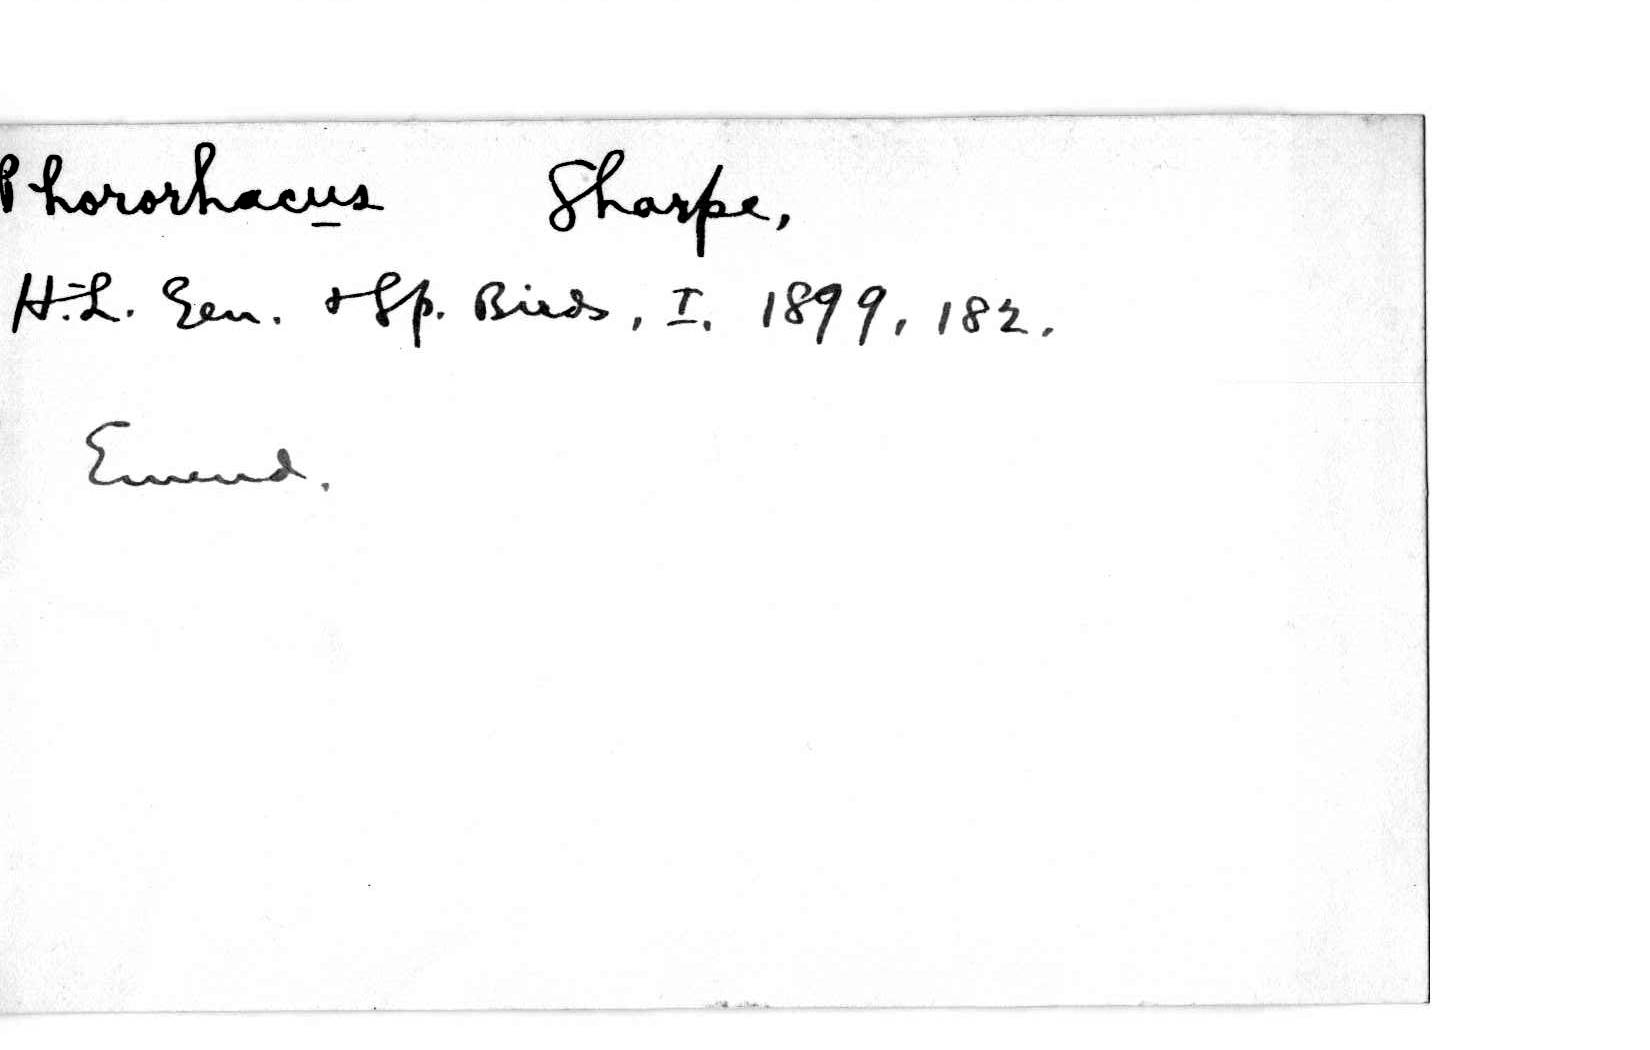 Phororhacus Sharpe,
H.-L. Gen. & Sp. Birds, I. 1899, 182.
Emend.